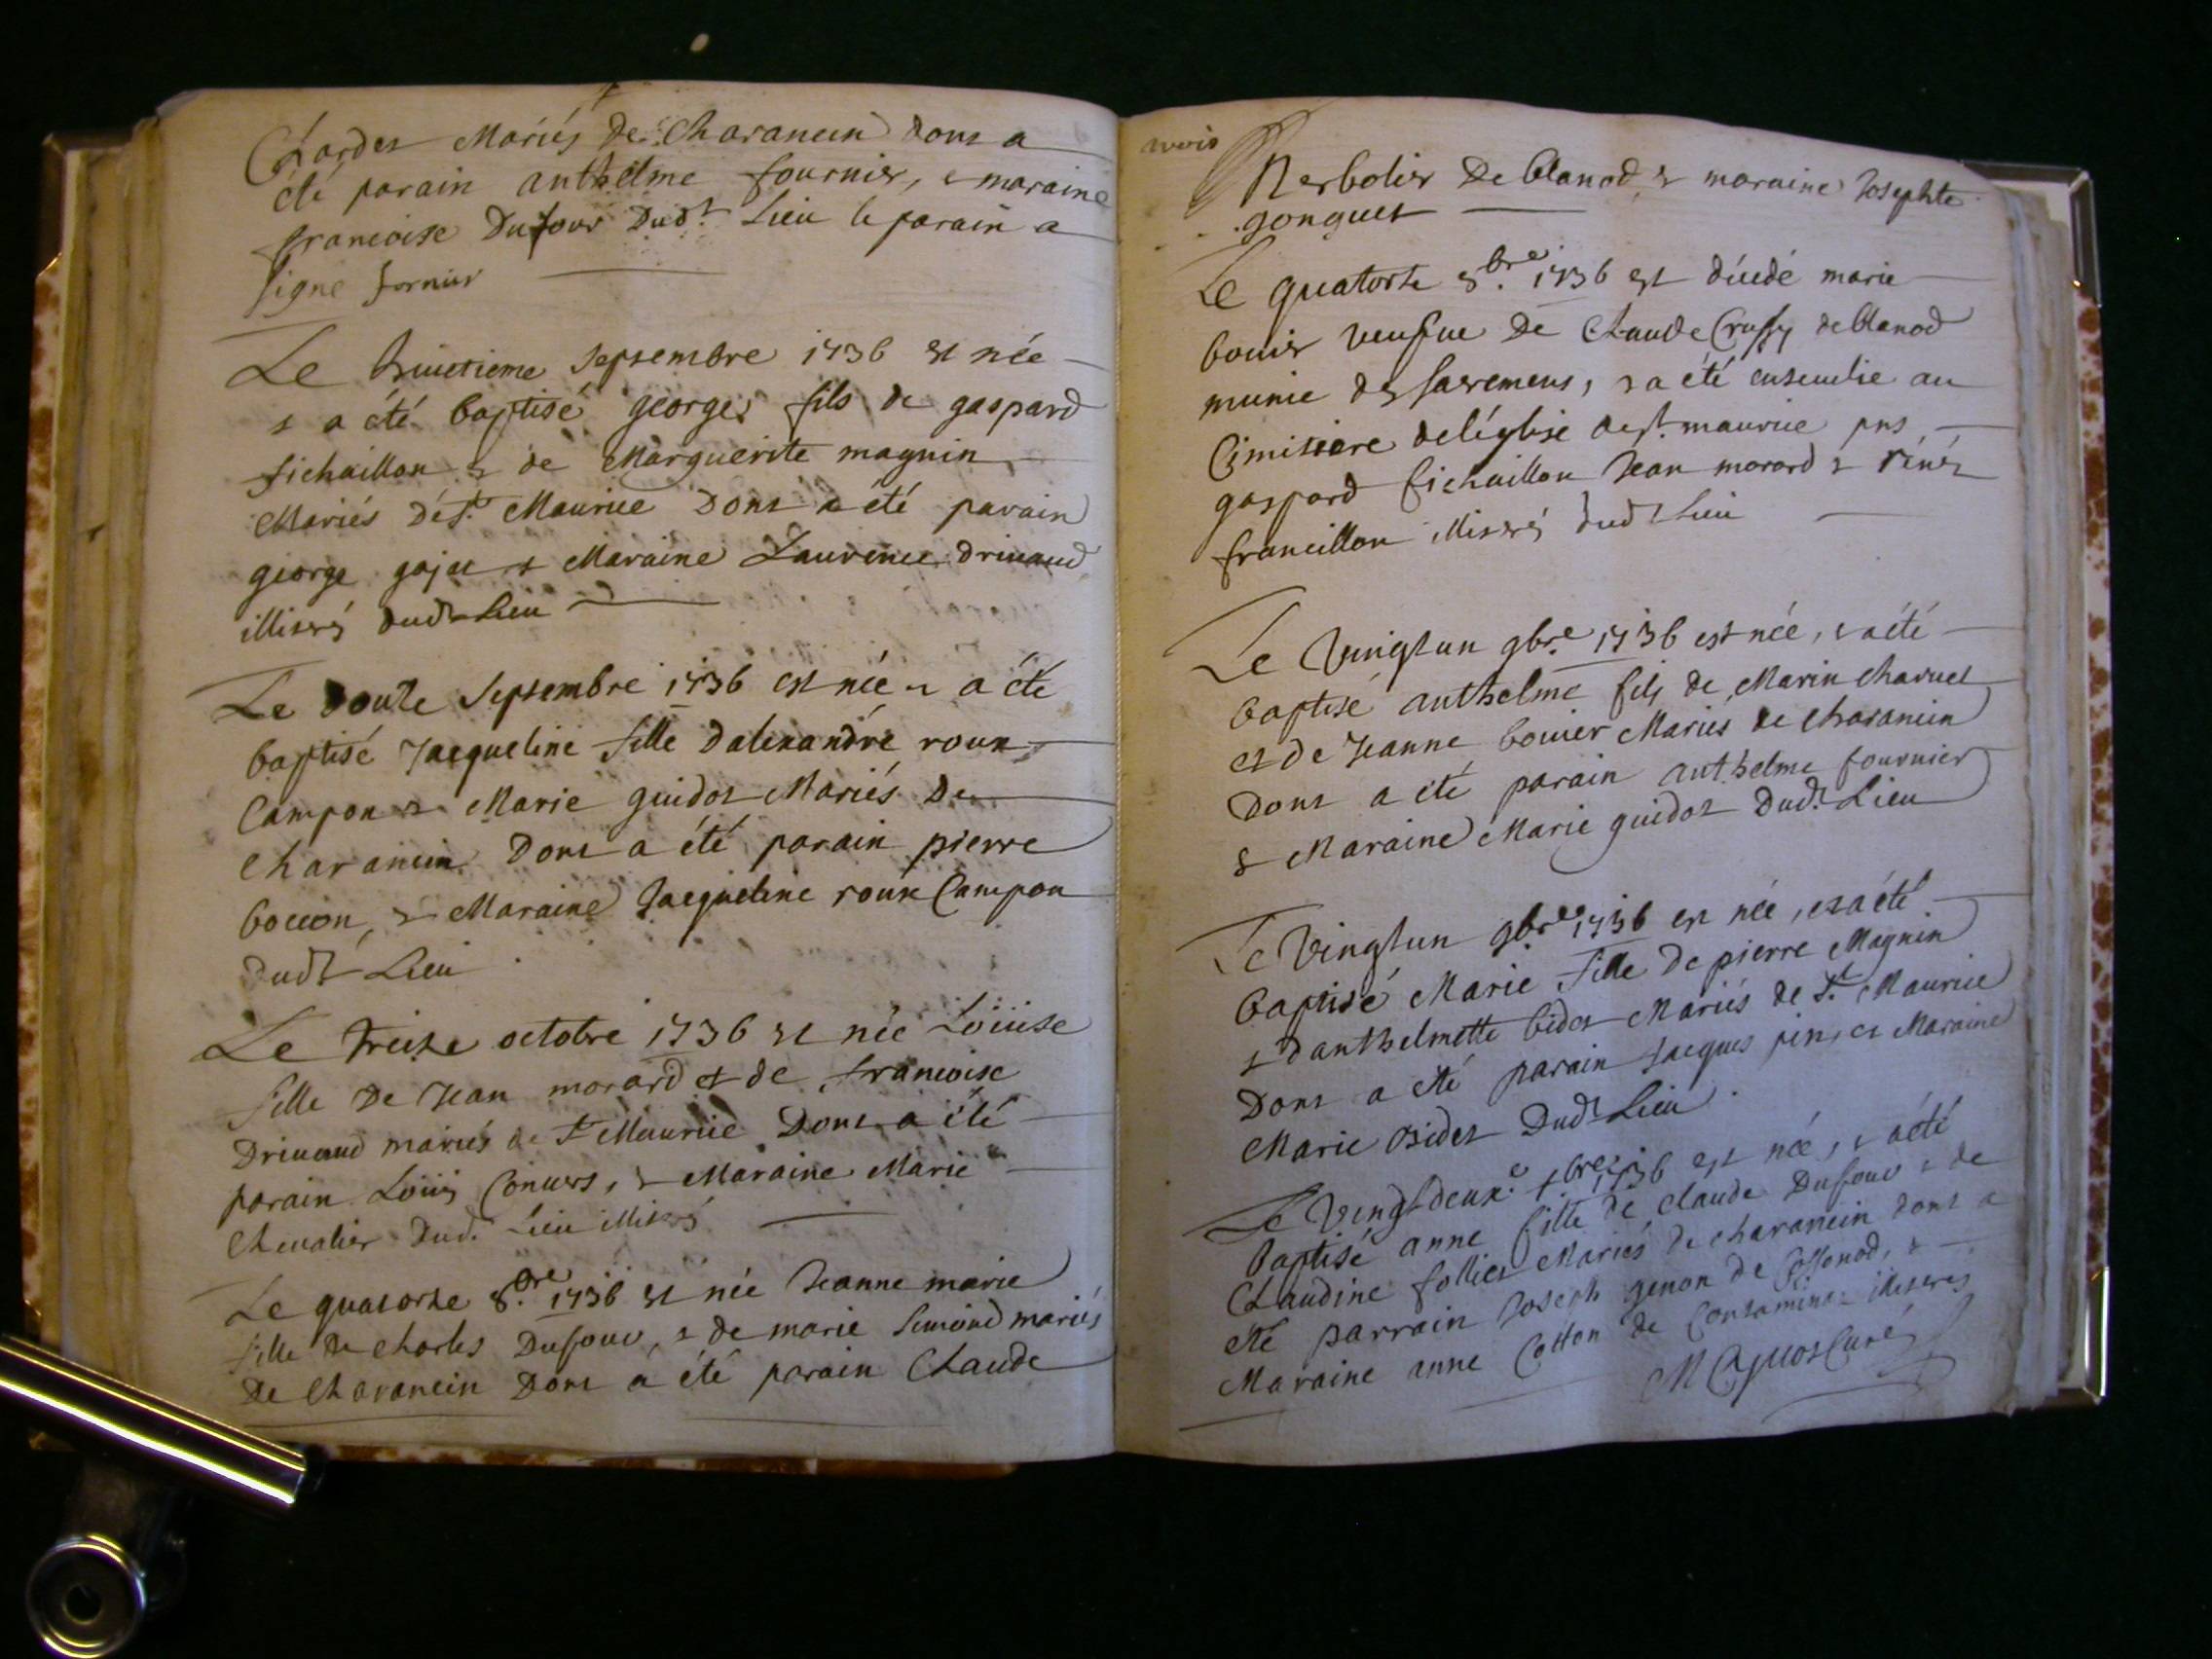 Chardet Mariés De Charancin dont a
été parain anthelme fournier, & maraine
francoise Dufour Dudt Lieu le parain a
signe fornier
Le huictieme Septembre 1736 est née
& a été baptisé george fils de gaspard
fichaillon & de Marguerite magnin
Mariés de st Maurice Dont a été parain
george & Maraine Laurence drivaud
illiterés dudt Lieu
Le douze Septembre 1736 est née & a été
baptisé Jacqueline fille dalexandre roux
Campon & Marie guidot Mariés De
Charancin Dont a été parain pierre
bocion, & Maraine Jacqueline roux Campon
dudt Lieu
Le treize octobre 1736 est née Loüise
fille De Jean morard et de francoise
Drivaud mariés de st Maurice Dont a été
parain Loüis Convers, & Maraine Marie
Chevalier Dud. Lieu illiterés
Le quatorze 8.bre 1736 est née Jeanne marie
fille De Charles Dufour, & de marie Simond mariés
De Charancin Dont a été parain Claude
Nerbolier De blanod & maraine Josephte
gonguet
Le quatorze 8.bre 1736 est décédé marie
bovier veufve De Claude Crussy de blanod
munie des sacremens, & a été ensevelie au
Cimitiere de léglise de st. maurice pns
gaspard fichaillon Jean morard & réné
francillon illiterés dudt Lieu
Le Vingt un 9bre 1736 est née, & a été
baptisé anthelme fils de Marin Charvet
et de Jeanne bovier Mariés de Charancin
Dont a été parain anthelme fournier
& Maraine Marie guidot Dudt Lieu
Le Vingt un 9bre 1736 est née, et a été
baptisé Marie fille De pierre Magnin
& d anthelmette bidet Mariés de st Maurice
Dont a été parain Jacques pin, et Maraine
Marie bidet Dudt Lieu
Le Vingt deuxe. 1736 est née, & a été
baptisé anne fille de Claude Dufour & de
Claudine folliet Mariés de Charancin dont a
été parrain Joseph genon de &
Maraine anne Cotton de Contamine illiteres
Curé